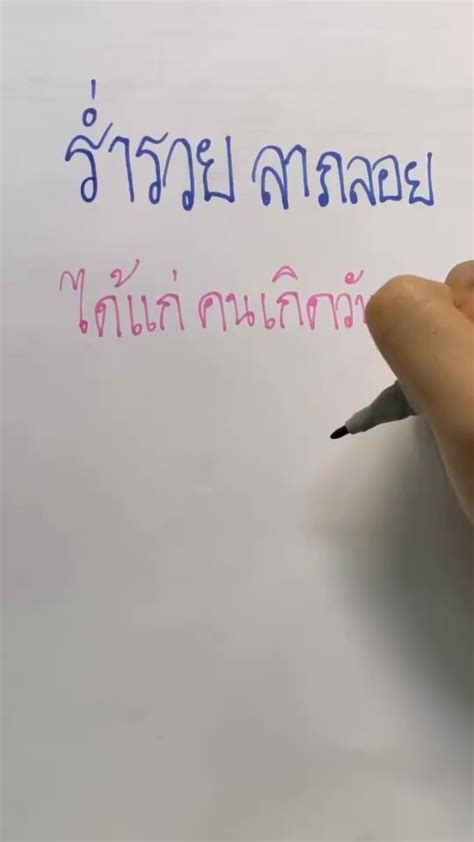 ร่ำรวย ลาภลอย
ได้แก่ คนเกิดวั